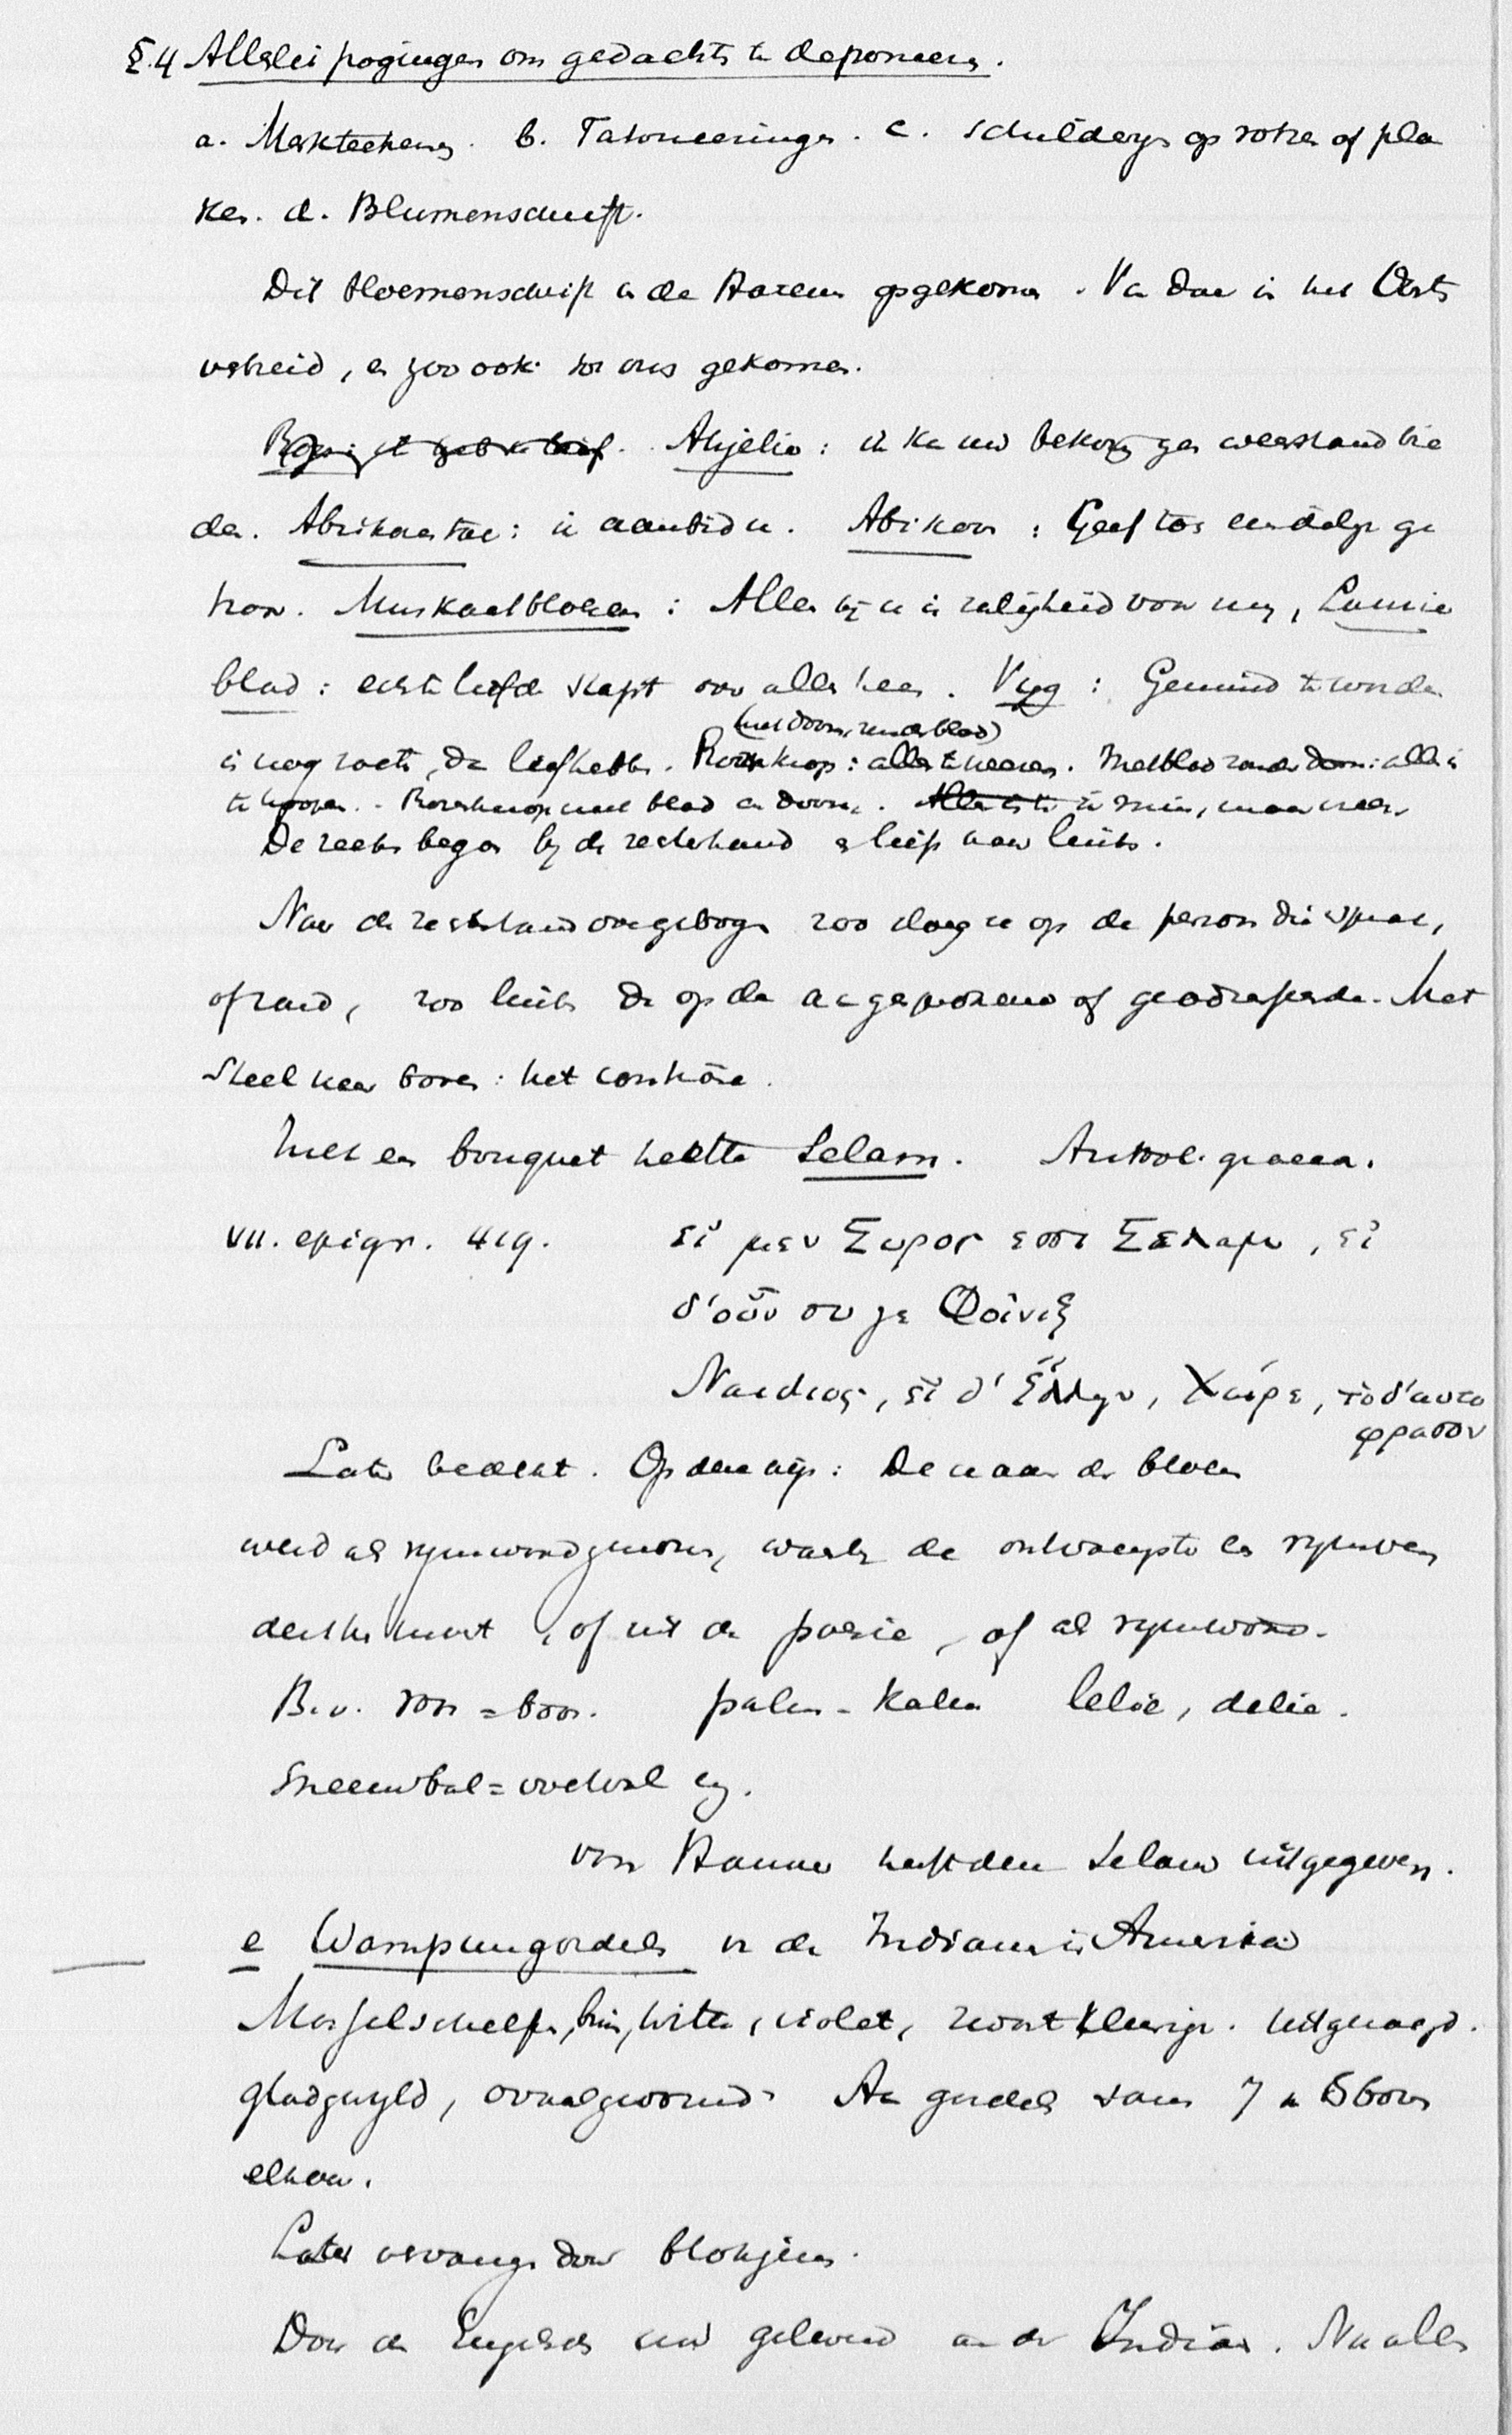 §.4 Allerlei pogingen om gedachte te deponeeren.
a. Merkteekens. b. Tatoueeringen. c. schilderys op rotsen of pla
ken. d. Blumenschrift.
Dit bloemenschrift in de Harems opgekomen. Van daar in het Oosten
verbreid, en zoo ook tot ons gekomen.
Anjelier: ik kan uw bekoring geen weerstand bie
den. ik aanbid u. Abikoos: Geef toch eindelijk ge
hoor. Muskaatbloem: Alles bij u is zaligheid voor mij, Laurier
blad: echte liefde stapt over alles heen. Vijg: Gewond te worden
(met doorn, zonder blad)
is nog zoets, die lief hebben. Rozeknop: alles te vreezen. Met blad zonder doorn: alles is
te hopen. Rozeknop met blad en doorn. maar
De reeks begon bij de rechterhand en liep naar links.
Naar de rechterhand omgebogen zoo sloeg ze op de persoon die sprak,
of zond, zoo links dan op den aangesprokene of geadresseerde. Met
steel naar boven: het contrarie.
Zulk een bouquet heette Selam. Anthol. graeca.
VII. epigr. 419. εἰ μεν Συρος εσσι Σελαμ, εἰ
δ'οὖν συ γε Φοῖνιξ
Ναιδιος, εἰ δ' Ἕλλην, Χαίρε, τὸ δ'αυτο
φρασον
Later bedekt. Op deze wijs: De naam der bloem
werd als rymwoord genomen, waarbij de ontvangster een rymwoord
of uit de poëzie, of als rymwoord.
B.v. roos = boos. palm - kalm lelie, delie.
Sneeuwbal = overal enz.
von Hammer heeft den Selam uitgegeven.
e Wampumgordels van de Indianen in Amerika
Mosselschelpen, bruin, witte, violet, zwart kleurige. Uitgezaagd.
gladgevyld, ovaalgevormd. Aan gordels van 7 à 8 boven
elkaar.
Later vervangen door blokjens.
Door de Engelschen geleverd aan de Indian. Na alles